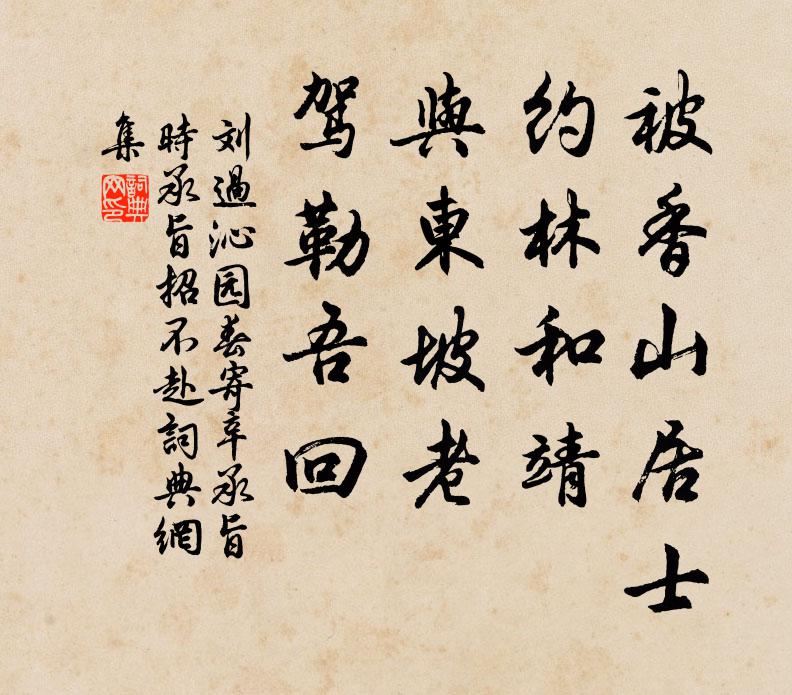 被香山居士
约林和靖
與東坡老
駕勒吾回
刘過沁园春寄辛承旨
時承旨招不赴詞典網
集
詞典网印